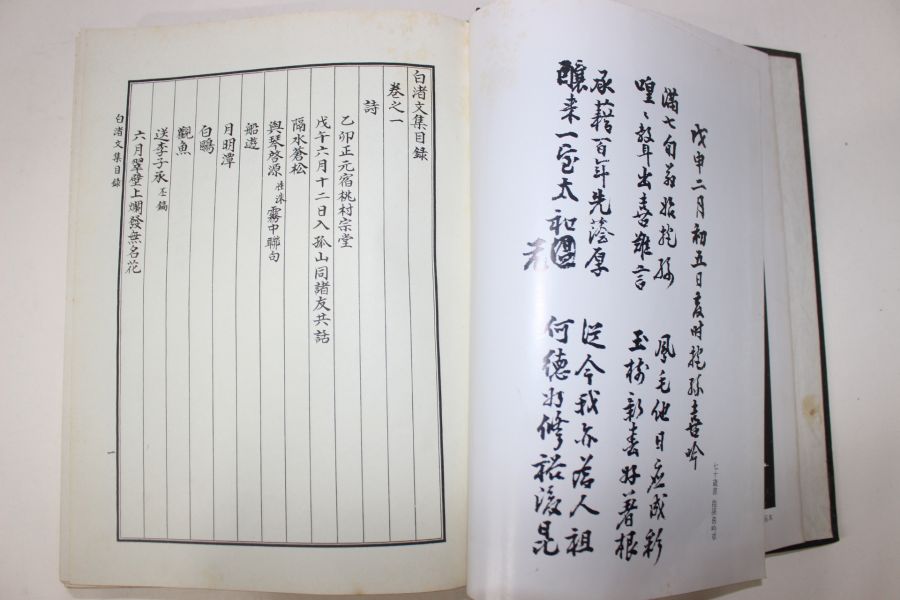 戊申二月初五日时抱孫喜吟
滿七旬翁始抱孫
喤〻聲出喜難言
鳳毛他日應成彩
玉樹新春好著根
承藉百年先蔭厚
釀来一室太和温
從今我亦為人祖
何德修裕後昆
七十歲書
白渚文集目錄
卷之一
詩
乙卯正元宿桃村宗堂
戊午六月十二日入孤山同諸友共話
隔水蒼松
與琴啓源 霧中聯句
船遊
月明潭
白鷗
觀魚
送李子承
六月翠壁上爛發無名花
白渚文集目錄
一